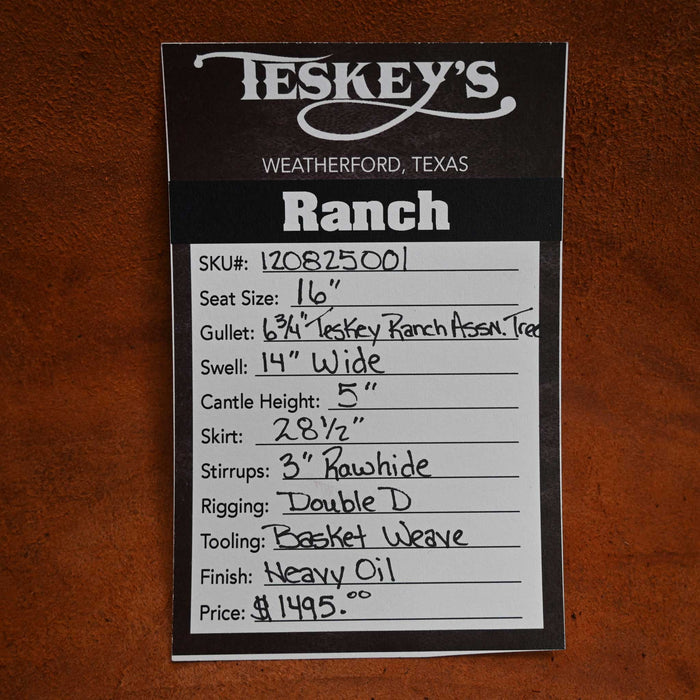 TESKEY'S
WEATHERFORD, TEXAS
Ranch
SKU#: 120825001
Seat Size: 16"
Gullet: 6 3/4" Teskey Ranch Assn. Tree
Swell: 14" Wide
Cantle Height: 5"
Skirt: 28 1/2"
Stirrups: 3" Rawhide
Rigging: Double D
Tooling: Basket Weave
Finish: Heavy Oil
Price: $1495.00